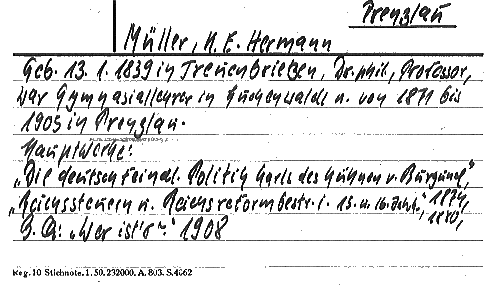 Prenzlau
Müller, K. E. Hermann
Geb. 13. 1. 1839 in Treuenbrietzen, Dr. phil., Professor,
war Gymnasiallehrer in Luckenwalde u. von 1871 bis
1905 in Prenzlau.
Hauptwerke:
„Die deutschfeindl. Politik Karls des Kühnen v. Burgund",
„Reichssteuern u. Reichsreformbestr. i. 15. u. 16. Jahrh.", 1874,
1880,
S. A.: „Wer ist's?" 1908
Reg. 10 Stichnote. 1. 50. 232000. A. 803. S. 4662